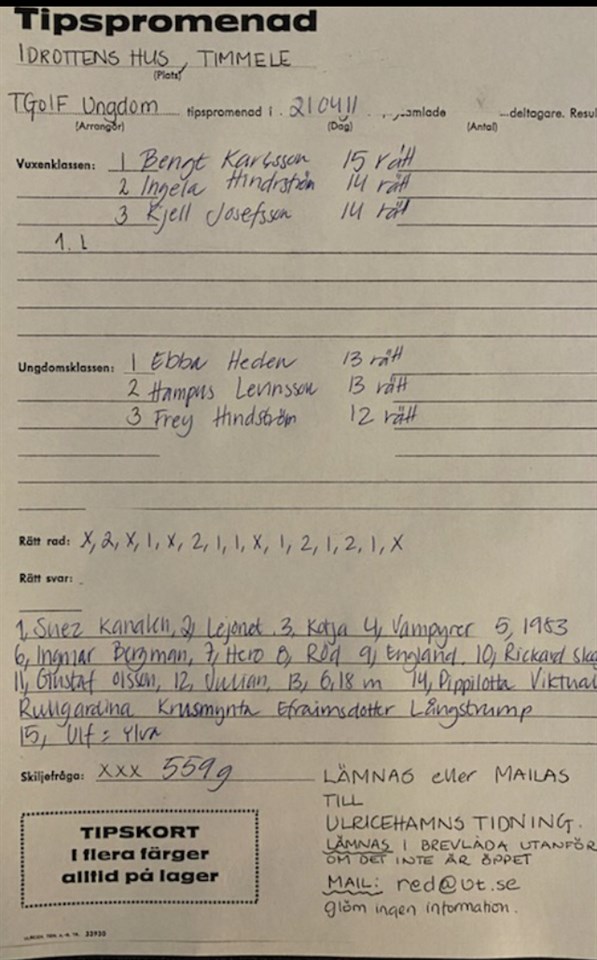 Tipspromenad
IDROTTENS HUS, TIMMELE
(Plats)
TGolF Ungdom tipspromenad i 210411 samlade deltagare. Resul
(Arrangör) (Dag) (Antal)
Vuxenklassen: 1 Bengt Karlsson 15 rätt
2 Ingela Hindrström 14 rätt
3 Kjell Josefsson 14 rätt
1. L
Ungdomsklassen: 1 Ebba Heden 13 rätt
2 Hampus Levinsson 13 rätt
3 Frey Hindström 12 rätt
Rätt rad: X, 2, X, 1, X, 2, 1, 1, X, 1, 2, 1, 2, 1, X
Rätt svar:
1, Suez Kanalen, 2, Lejonet 3, Katja 4, Vampyrer 5, 1983
6, Ingmar Bergman, 7, Hero 8, Röd 9, England. 10, Rickard
11, Gustaf Olsson, 12, Julian, 13, 6,18 m 14, Pippilotta Viktuai
Rullgardina Krusmynta Efraimsdotter Långstrump
15, Ulf = Ylva
Skiljefråga: XXX 559g
LÄMNAS eller MAILAS
TILL
ULRICEHAMNS TIDNING.
LÄMNAS I BREVLÅDA UTANFÖR
OM DET INTE ÄR ÖPPET
MAIL: red@ut.se
glöm ingen information.
TIPSKORT
I flera färger
alltid på lager
32930